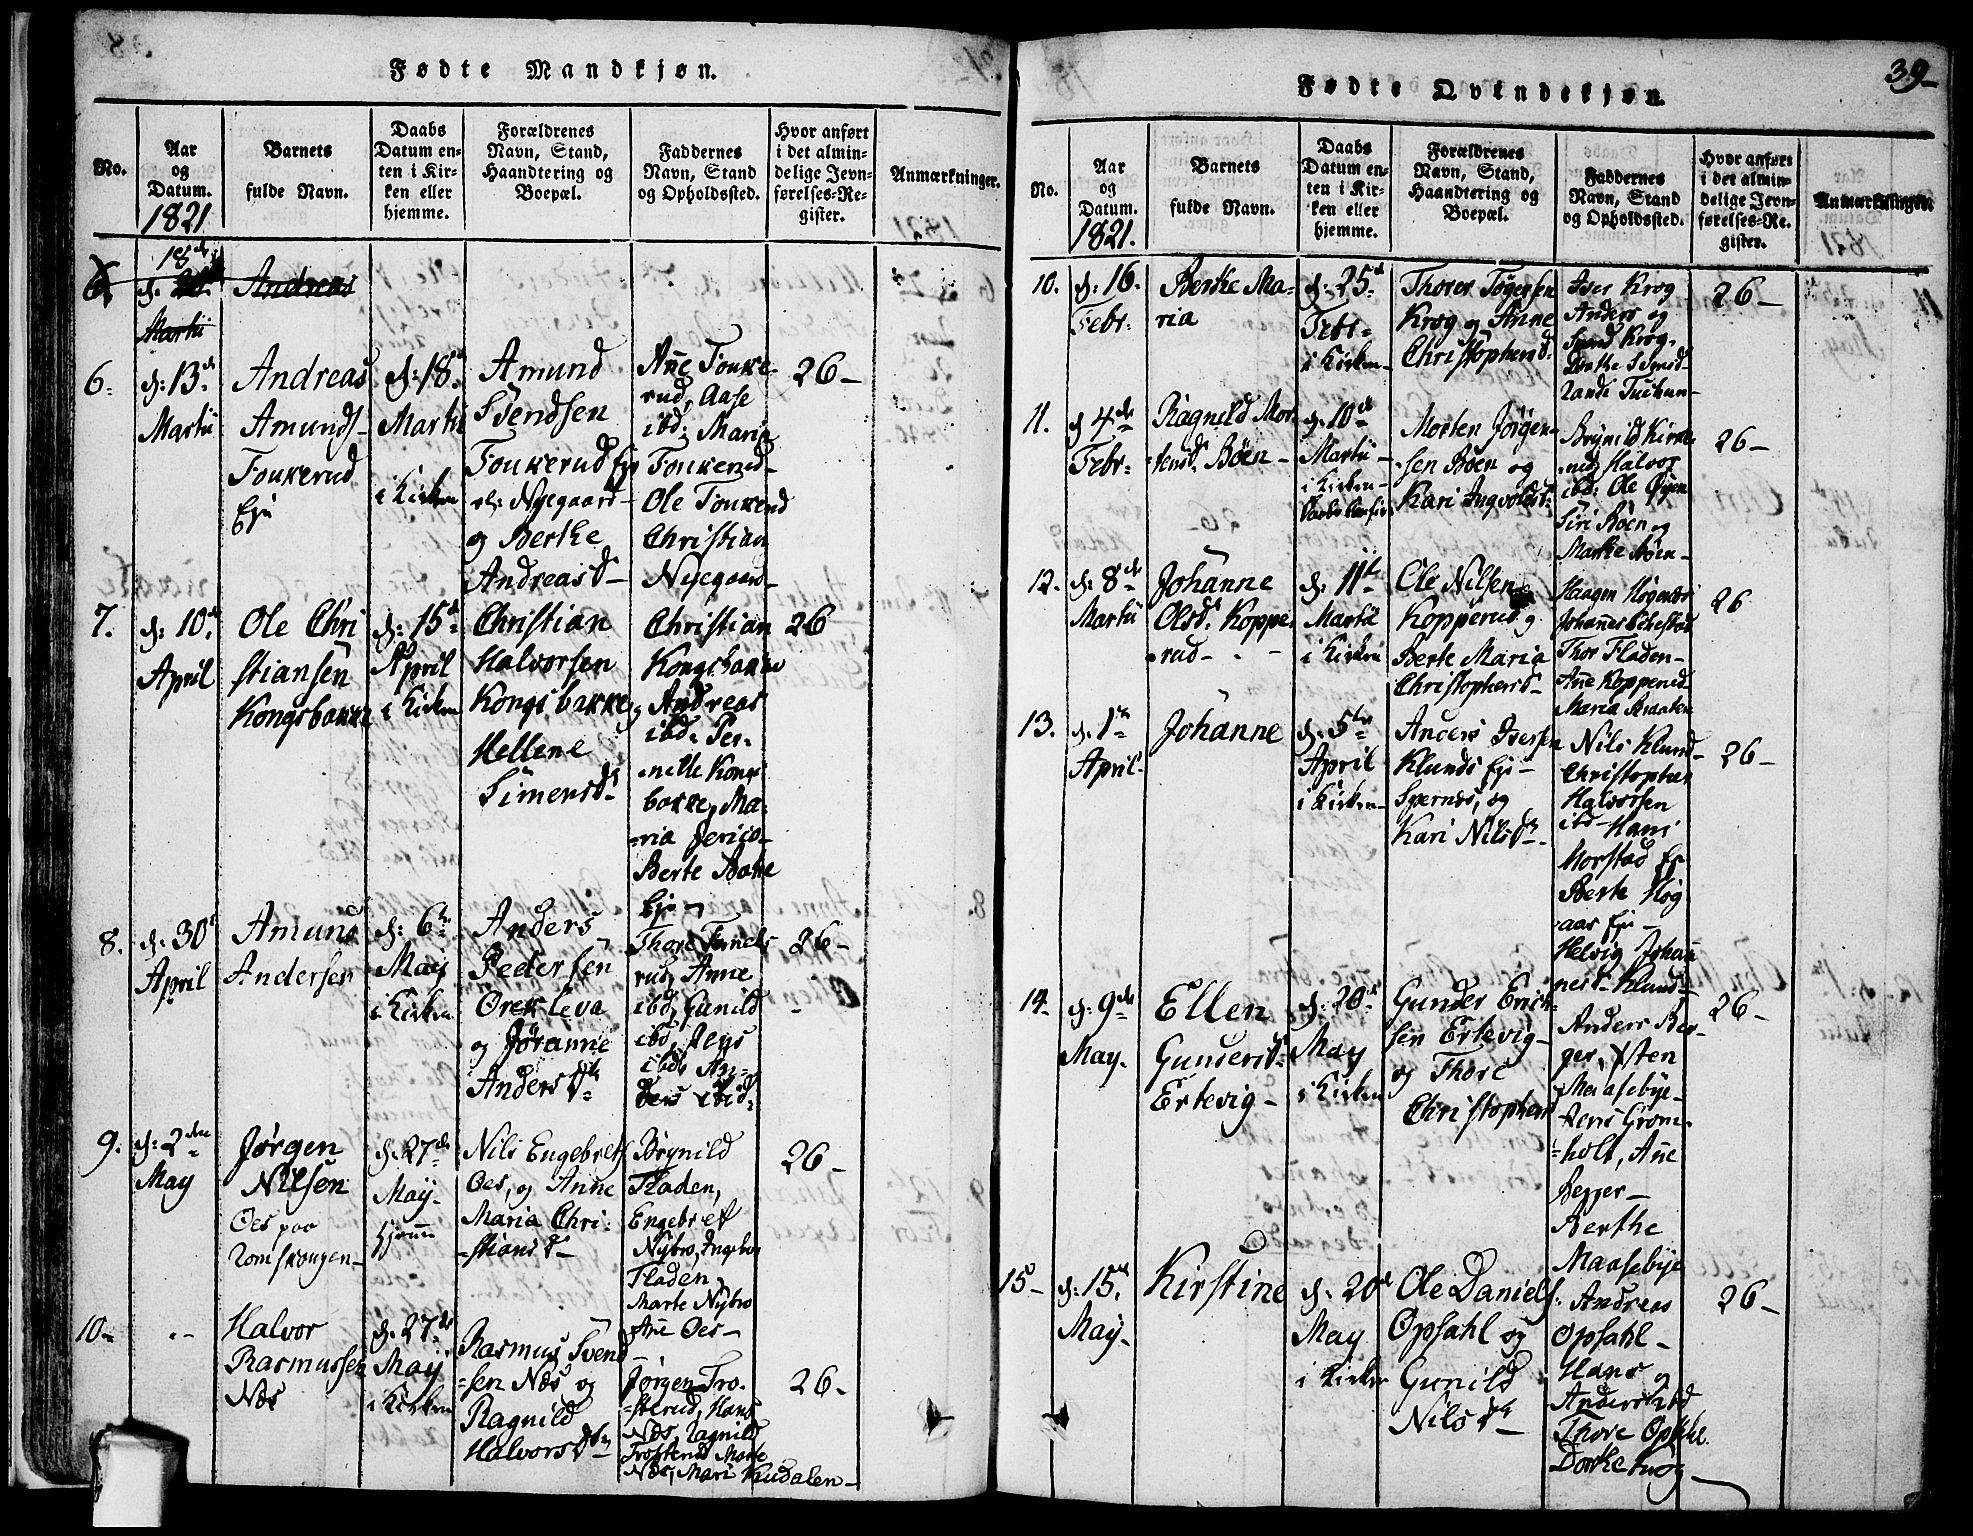 Fødte Mandkjøn.
No.
Aar
og
Datum.
1821
Barnets
fulde Navn.
Daabs
Datum en-
ten i Kir-
ken eller
hjemme.
Forældrenes
Navn, Stand,
Haandtering og
Boepæl.
Faddernes
Navn, Stand
og Opholdssted.
Hvor anført
i det almin-
delige Jevn-
førelses-Re-
gister.
Anmærkninger.
6.
18de
Martii
Andreas
6.
d: 13de
Martii
Andreas
Amunds-
Foukerud
Eje
d: 18de
Martii
i Kirken
Amund
Svendsen
Foukerud Eje
Nyegaard-
og Berthe
Andreasd-
Añe Fouke-
rud, Aase
ibd; Maria
Foukerud-
Ole Foukerud
Christian
Nyegaard-
26-
7.
d: 10de
April
Ole Chri
stiansen
Kongsbakke
d: 15de
April
i Kirken
Christian
Halvorsen
Kongsbakke og
Hellene
Simensd-
Christian
Kongsbakke
Andreas
ibd. Per-
nille Kongs
bakke, Ma-
ria Jerico-
Berte Bakke
Eje-
26
8.
d: 30te
April
Amund
Andersen
d: 6te
May
i Kirken
Anders
Pedersen
Orekleva
og Jøranne
Andersd-
Thore
rud, Anne
ibd, Gunild
ibd, Jens
ibd, An-
ders ibid-
26-
9.
d: 2den
May
Jørgen
Nilsen
Oes paa
Romskougen-
d. 27de
May-
hjemme
Nils Engebrets
Oes, og Anne
Maria Chri-
stiansd-
Brynild
Fladen,
Engebret
Nybro, Ingebor
Fladen
Marte Nybro
Añe Oes-
26-
10-
Halvor
Rasmussen
Næs
d. 27de
May
i Kirken
Rasmus Svend
sen Næs og
Ragnild
Halvorsd-
Jørgen Tro-
sterud, Hans
Næs, Ragnild
Trosterud Marte
Næs, Mari Kudalen-
26-
39-
Fødte Qvindekjøn.
No.
Aar
og
Datum.
1821.
Barnets
fulde Navn.
Daabs
Datum en-
ten i Kir-
ken eller
hjemme.
Forældrenes
Navn, Stand,
Haandtering og
Boepæl.
Faddernes
Navn, Stand
og Opholdssted.
Hvor anført
i det almin-
delige Jevn-
førelses-Re-
gister.
Anmærkninger.
10.
d: 16.
Febr:
Berthe Ma-
ria
d: 25de
Febr-
i Kirken-
Thorer Tøgersen
Krog og Anne
Christophersd.
Iver Krog
Anders og
Svend Krog.
26-
11.
d 4de
Febr-
Ragnild Mor-
tensd. Bøen-
d: 10de
Martii-
i Kirken-
Morten Jørgen-
sen Bøen og
Kari Ingvoldsd-
Brynild Kirke-
rud, Halvor
ibd: Ole Øyen
Siri Bøen og
Marthe Bøen-
26-
12.
d: 8de
Martii
Johanne
Olsd. Koppe-
rud-
d: 11te
Martii
i Kirken
Ole Nilsen
Kopperud og
Berte Maria
Christophersd-
Haagen Høgenæs
Johanes Echestad
Thor Fladen-
Añe Kopperud-
Maria Braaten
26
13.
d. 1te
April-
Johanne
d: 5te
April
i Kirken-
Anders Iversen
Klunds Eje-
Spernes, og
Kari Nilsd-
Nils Klund-
Christopher
Halvorsen
ibd- Hans
Morstad Ej
Berte Høg
aas Eje-
Helvig Johañ
nesd- Klund-
26-
14-
d: 9de
May-
Ellen
Gundersd-
Ertevig-
d: 20de
May
i Kirken
Gunder Erich-
sen Ertevig-
og Thore
Christophersd
Anders Ber-
ger, Østen
Maasebye-
Jens Grøm-
holt, Añe
Berger-
Berthe
Maasebye
26-
15-
d: 15de
May-
Kirstine
d: 20de
May
i Kirken
Ole Daniels
Opsahl og
Gunild
Nilsd-
Andreas
Opsahl-
Hans og
Anders ibd
Thore Opsahl.
Dorthe Krog-
26-